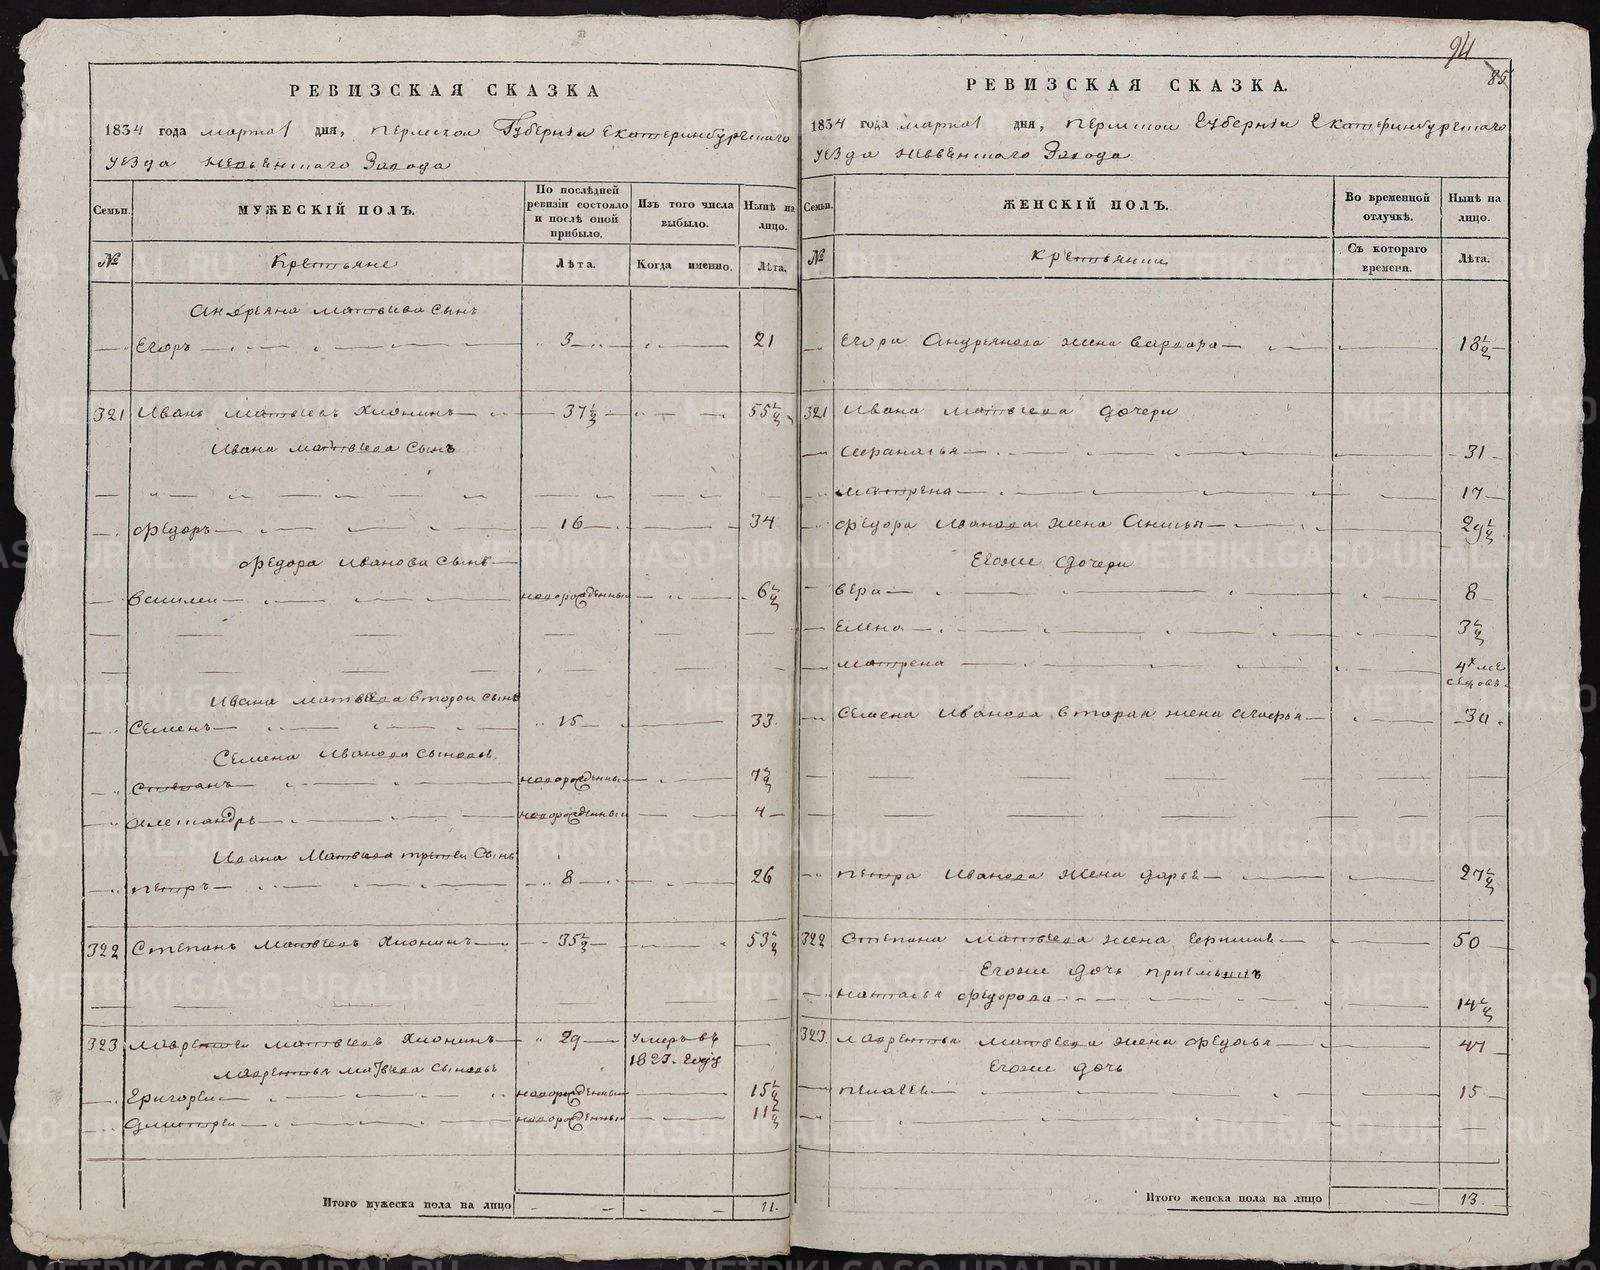 94
85
РЕВИЗСКАЯ СКАЗКА
1834 года марта 1 дня, Пермской Губернии Екатеринбургскаго
уезда невьенскаго Завода
Семьи.
МУЖЕСКІЙ ПОЛЪ.
По послѣдней ревизіи состояло и послѣ оной прибыло.
Изъ того числа выбыло.
Нынѣ на лицо.
№
Крестьяне
Лѣта.
Когда именно.
Лѣта.
Андреяна Матвиева сынъ
Егоръ 3 21
321 Иванъ Матвеевъ Хионинъ 37½ 55½
Ивана Матвеева сынъ
Федоръ 16 34
Федора Иванова сынъ
Василеи новорожденный 6½
Ивана Матвеева второи сынъ
Семенъ 15 33
Семена Иванова сыновья
Степанъ новорожденный 7½
Александръ новорожденный 4
Ивана Матвеева третеи сынъ
Петръ 8 26
322 Степанъ Матвеевъ Хионинъ 35½ 53½
323 Лаврентеи Матвеевъ Хионинъ 29 Умеръ въ
году
Лаврентья Матвеева сыновья
Григореи новорожденный 15½
Дмитреи новорожденный 11½
Итого мужеска пола на лицо 11.
РЕВИЗСКАЯ СКАЗКА.
1834 года марта 1 дня, Пермской Губернии Екатеринбургскаго
уезда невьенскаго Завода
Семьи.
ЖЕНСКІЙ ПОЛЪ.
Во временной отлучкѣ.
Нынѣ на лицо.
№
Крестьянки
Съ котораго времени.
Лѣта.
Егора Андреянова жена Варвара 18½
321 Ивана Матвеева дочери
31
Матрена 17
Федора Иванова жена Анисья 29½
Егоже дочери
Вера 8
Елена 3½
Матрена 4х ме
сецовъ
Семена Иванова вторая жена Агафья
Петра Иванова жена Дарья 27½
322 Степана Матвеева жена 50
Егоже дочь приемышъ
Наталья Федорова 14½
323 Лаврентья Матвеева жена Федосья 47
Егоже дочь
Пелагея 15
Итого женска пола на лицо 13.
METRIKI.GASO-URAL.RU